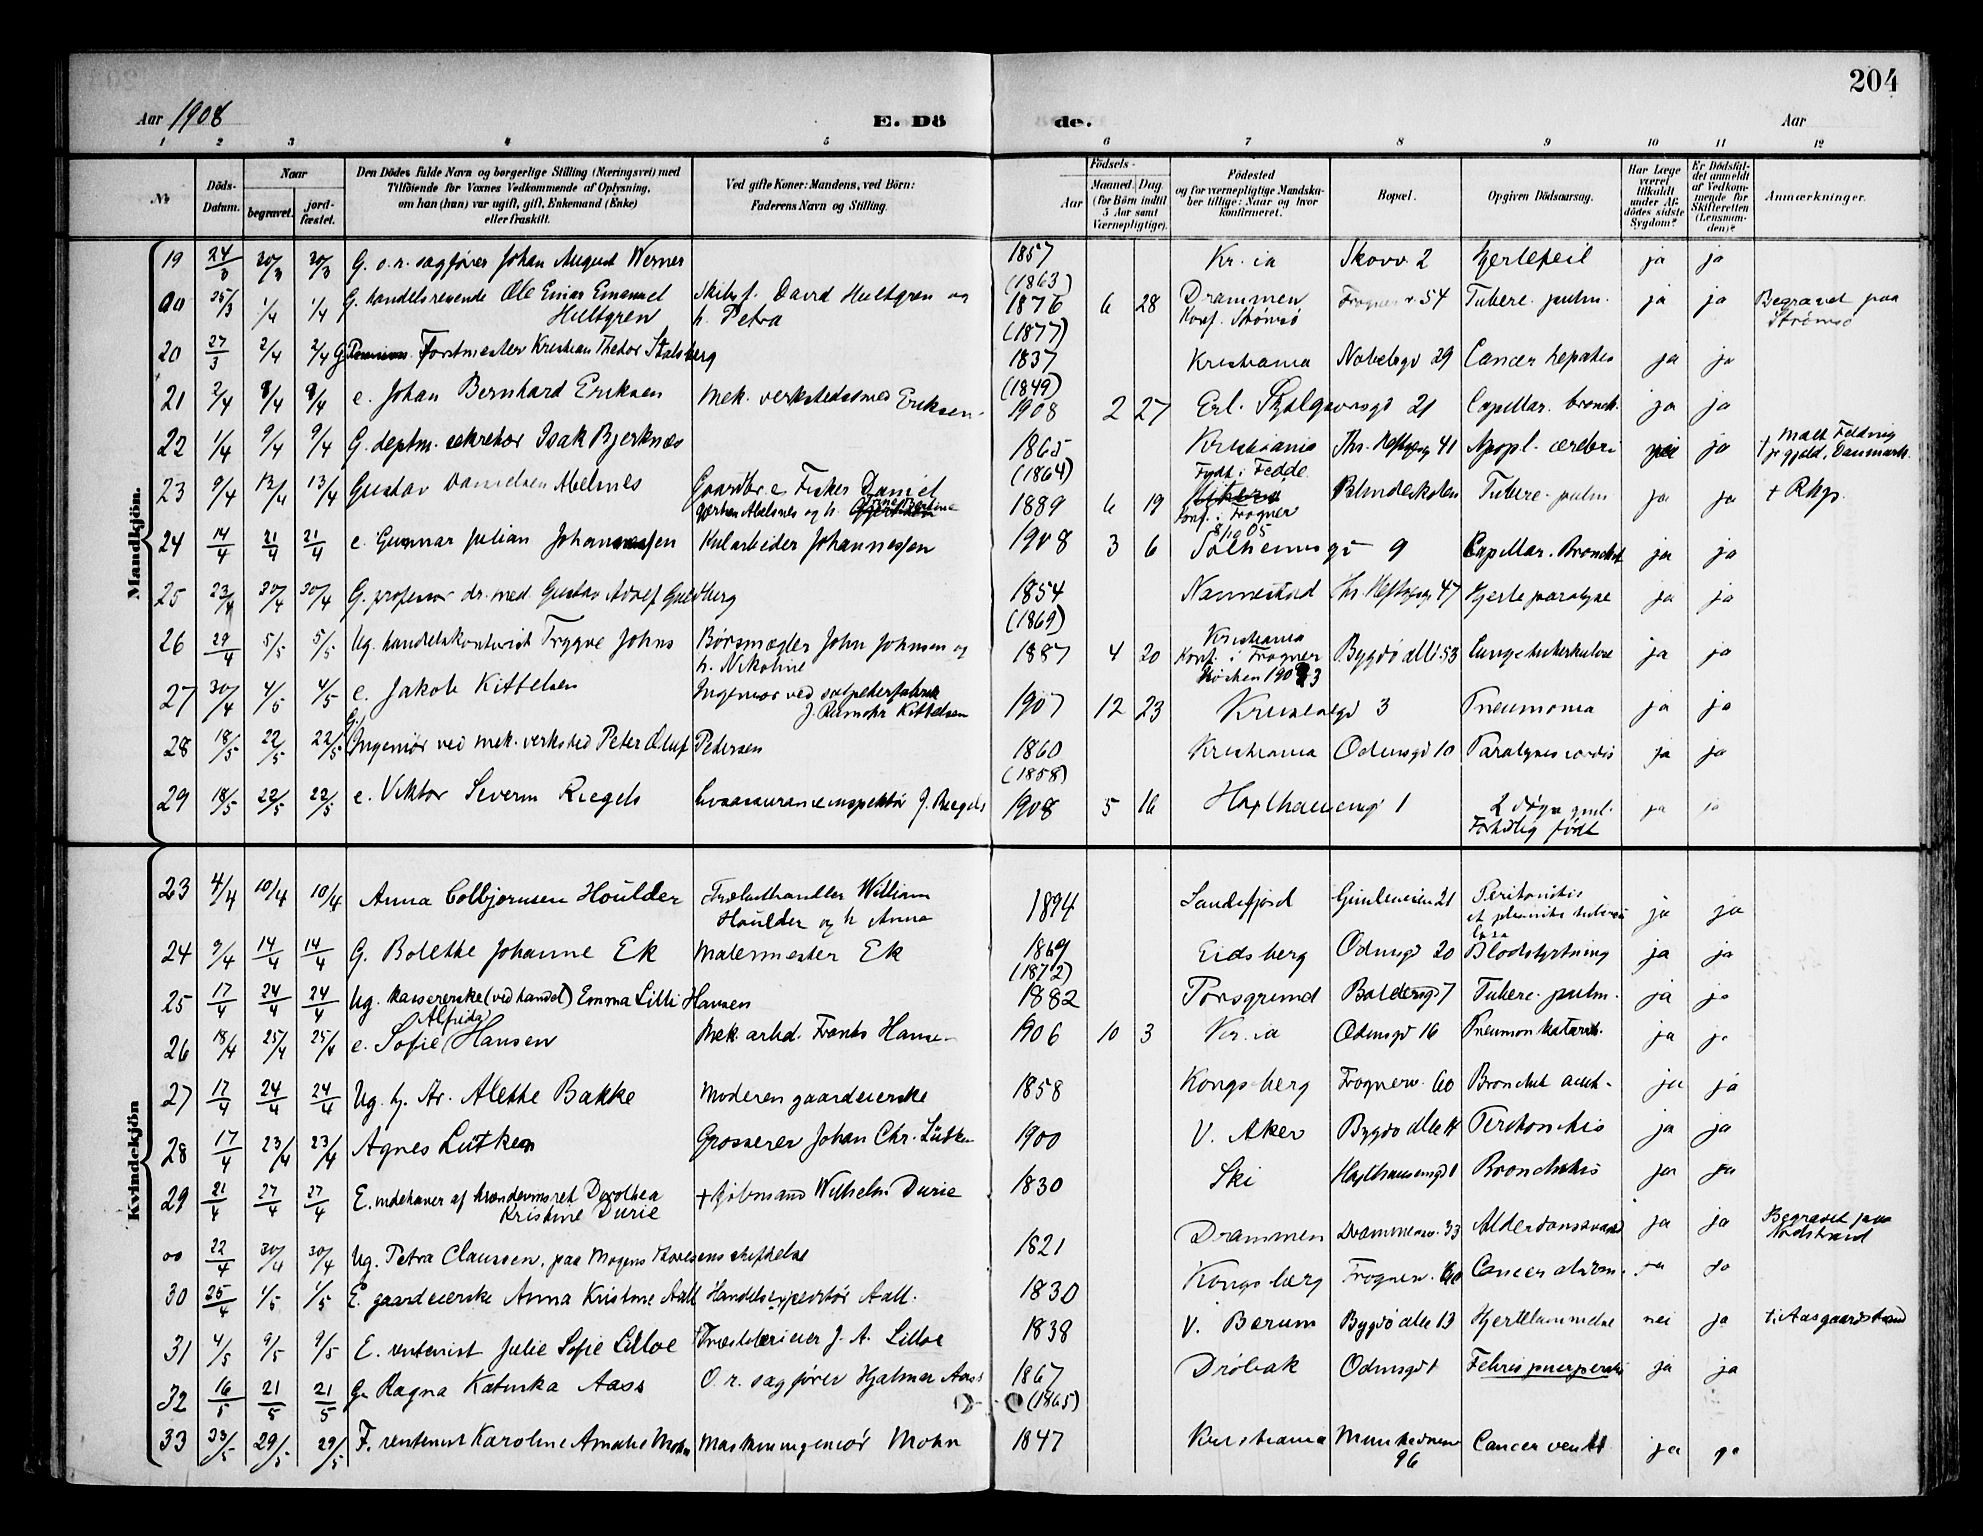 204
Aar 1908
E. Dö de.
Aar
1 2 3 4 5 6 7 8 9 10 11 12
№
Döds-Datum.
Naar begravet. jord-fæstet.
Den Dödes fulde Navn og borgerlige Stilling (Næringsvei) med
Tilföiende for Voxnes Vedkommende af Oplysning,
om han (hun) var ugift, gift, Enkemand (Enke)
eller fraskilt.
Ved gifte Koner: Mandens, ved Börn:
Faderens Navn og Stilling.
Födsels-
Aar
Maaned. Dag.
(for Börn indtil
5 Aar samt
Værnepligtige).
Födested
og for værnepligtige Mandska-
ber tillige: Naar og hvor
konfirmeret.
Bopæl.
Opgiven Dödsaarsag.
Har Læge
været
tilkaldt
under Af-
dödes sidste
Sygdom?
Er Dödsfal-
det anmeldt
af Vedkom-
mende for
Skifteretten
(Lensman-
den)?
Anmærkninger.
Mandkjön.
19 24/3 30/3 30/3 G. o.r. sagfører Johan August Werner 1857 (1863) Kr.ia Skovv 2 Hjertefeil ja ja
00 25/3 1/4 1/4 G. handelsreisende Ole Einar Emanuel Hultgren Skibsf. David Hultgren og h. Petra 1876 (1877) 6 28 Drammen Konf. Strømsö Frogner v. 54 Tuberc. pulm. ja ja Begravet paa Strømsö
20 27/3 2/4 2/4 G Forstmester Kristian Thedor Stalsberg 1837 (1849) Kristiania Nobelsgd 29 Cancer hepatis ja ja
21 2/4 8/4 8/4 e. Johan Bernhard Eriksen Mek. verkstedssmed Eriksen 1908 2 27 Erl. Skjalgssonsgd 21 Capillar. bronch. ja ja
22 1/4 9/4 9/4 G. deptm. sekretær Isak Bjerknæs 1865 (1864) Kristiania Ths. Heftyesg 41 Apopl. cerebri ja
23 9/4 13/4 13/4 Gustav Danielsen Abelnes Gaardbr. e Fisker Daniel Abelsnes og h. 1889 6 19 Født i Fedde Konf. i Frogner 8/10 05 Blindeskolen Tuberc. pulm ja ja + Rhgs.
24 14/4 21/4 21/4 e. Gunnar Julian Johannessen Kularbeider Johannessen 1908 3 6 Solheimsgd 9 Capillar. Bronchit ja ja
25 23/4 30/4 30/4 G. professor dr. med. Gustav Adolf Guldberg 1854 (1869) Nannestad Ths. Heftyesg 47 Hjerteparalyse ja ja
26 29/4 5/5 5/5 Ug. handelskontorist Trygve Johns Børsmægler John Johnsen og h. Nikoline 1887 4 20 Kristiania Konf. i Frogner Høsten 1903 Bygdö allé 53 Lungetuberkulose ja ja
27 30/4 4/5 4/5 e. Jakob Kittelsen Ingeniør ved salpeterfabrik J. Kittelsen 1907 12 23 Kristinsgd 3 Pneumonia ja ja
28 18/5 22/5 22/5 G. Ingeniør ved mek. verksted Peter Oluf Petersen 1860 (1858) Kristiania Odinsgd 10 Paralysis cordis ja ja
29 18/5 22/5 22/5 e. Viktor Severin Riegels Livsassuranceinspektör J. Riegels 1908 5 16 Haxthausensgd 1 2 døgn gml. For tidlig født ja ja
Kvindekjön
23 4/4 10/4 10/4 Anna Colbjørnsen Houlder Trælasthandler William Houlder og h Anna 1894 Sandefjord Gimleveien 21 Peritonitis et pleuritis ja ja
24 9/4 14/4 14/4 G. Bolette Johanne Ek Malermester Ek 1869 (1872) Eidsberg Odinsgd 20 Blodstyrtning ja ja
25 17/4 24/4 24/4 Ug. kassererske (ved handel) Emma Lilli Hansen 1882 Porsgrund Baldersgd 7 Tuberc. pulm. ja ja
26 18/4 25/4 25/4 e. Sofie Alfrida Hansen Mek. arbd. Frants Hansen 1906 10 3 Kr.ia Odinsgd 16 Pneumon katarrh. ja ja
27 17/4 24/4 24/4 Ug. hj. Ar. Alette Bakke Moderen gaardeierske 1858 Kongsberg Frognerv. 60 Bronchit acut. ja ja
28 17/4 23/4 23/4 Agnes Lütken Grosserer Johan Chr. Lütken 1900 V. Aker Bygdö allé Peritonitis ja ja
29 21/4 27/4 27/4 E. indehaver af Dorothea Kristine Durie + kjöbmand Wilhelm Durie 1830 Ski Haxthausensgd 1 Bronchitis ja ja
00 22/4 30/4 30/4 Ug. Petra Claussen, paa Mogens Thorsens stiftelse 1821 Drammen Drammensv. 33 Alderdomssvaghed ja ja Begravet paa Nordstrand
30 25/4 1/5 1/5 E. gaardeierske Anna Kristine Aall Handelsexpeditör Aall. 1830 Kongsberg Frognerv. 60 Cancer ja ja
31 4/5 9/5 9/5 E. rentenist Julie Sofie Lilloe Træsliberieier J. A. Lilloe 1838 V. Bærum Bygdö allé 13 Hjertelammelse nei ja t. Aasgaardstrand
32 16/5 21/5 21/5 G. Ragna Katinka Aass O. r. sagfører Hjalmar Aass 1867 (1865) Dröbak Odinsgd 1 Febris puerperalis ja ja
33 23/5 29/5 29/5 F. rentenist Karoline Amalie Mohn Maskiningeniör Mohn 1847 Kristiania Munkedamsv 96 Cancer ventr. ja ja